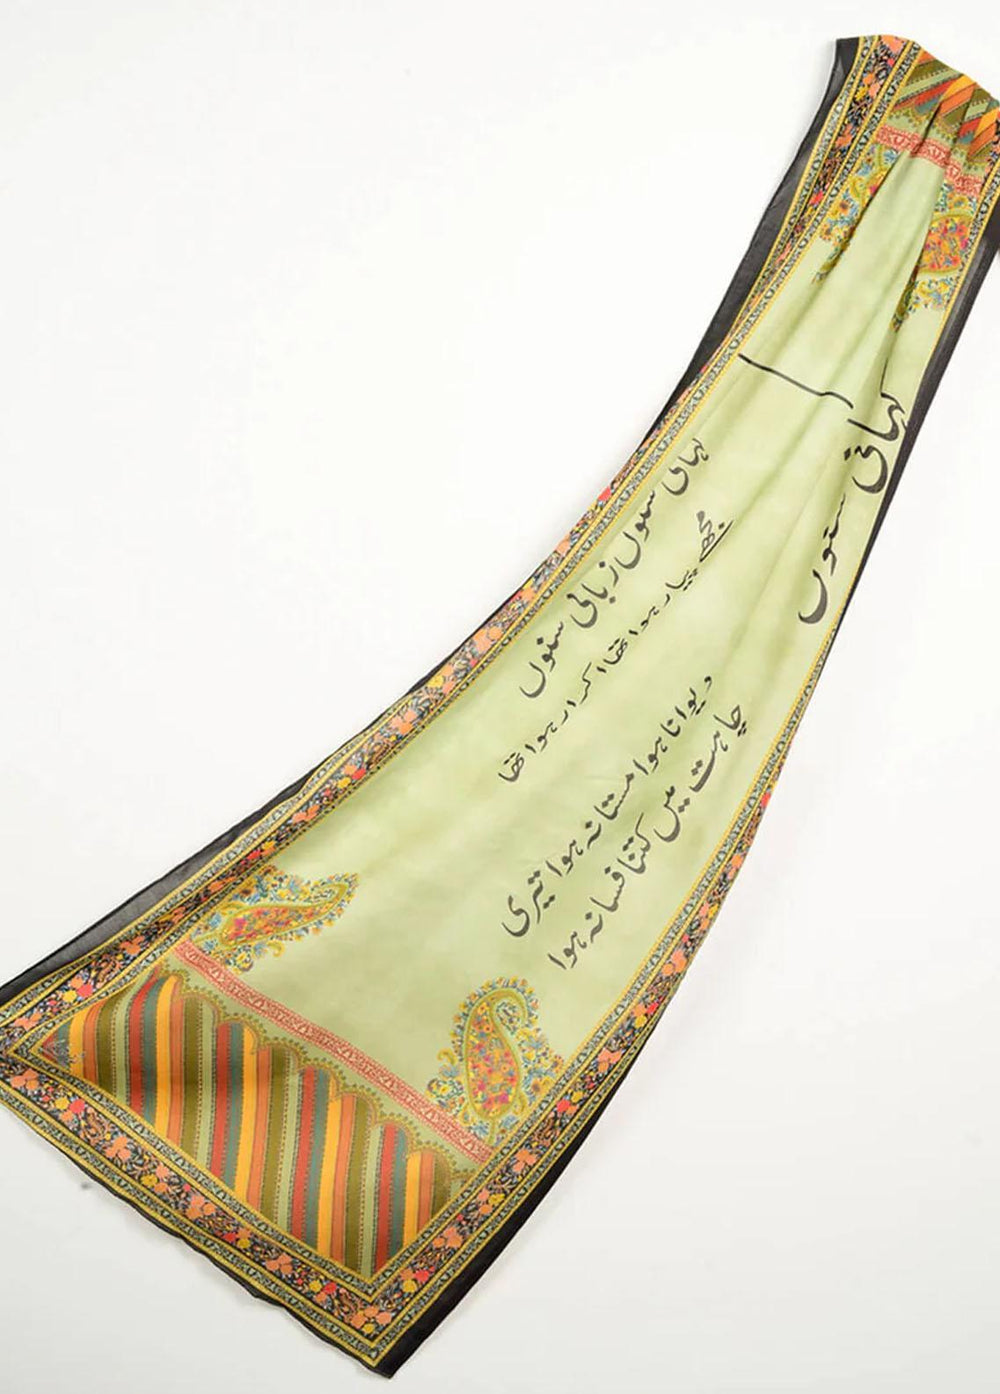 کہانی سنوں
کہانی سنوں زبانی سنوں
مجھے پیار ہوا تھا اکرار ہوا تھا
دیوانا ہوا مستانہ ہوا تیری
چاہت میں کتنا فسانہ ہوا